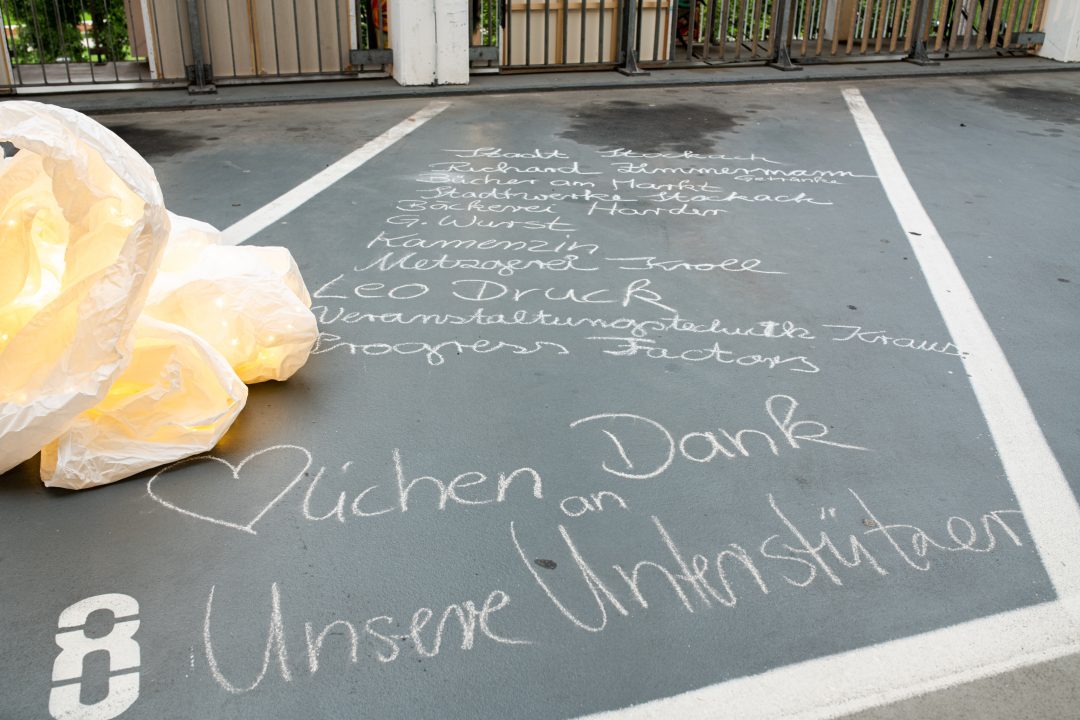 Stadt Stockach
Richard Zimmermann
Getränke
Bücher am Markt
Stadtwerke Stockach
Bäckerei Harder
G. Wurst
Kamenzin
Metzgerei Kroll
Leo Druck
Veranstaltungstechnik Kraus
Progress Factors
♡lichen Dank
an
Unsere Unterstützer
8